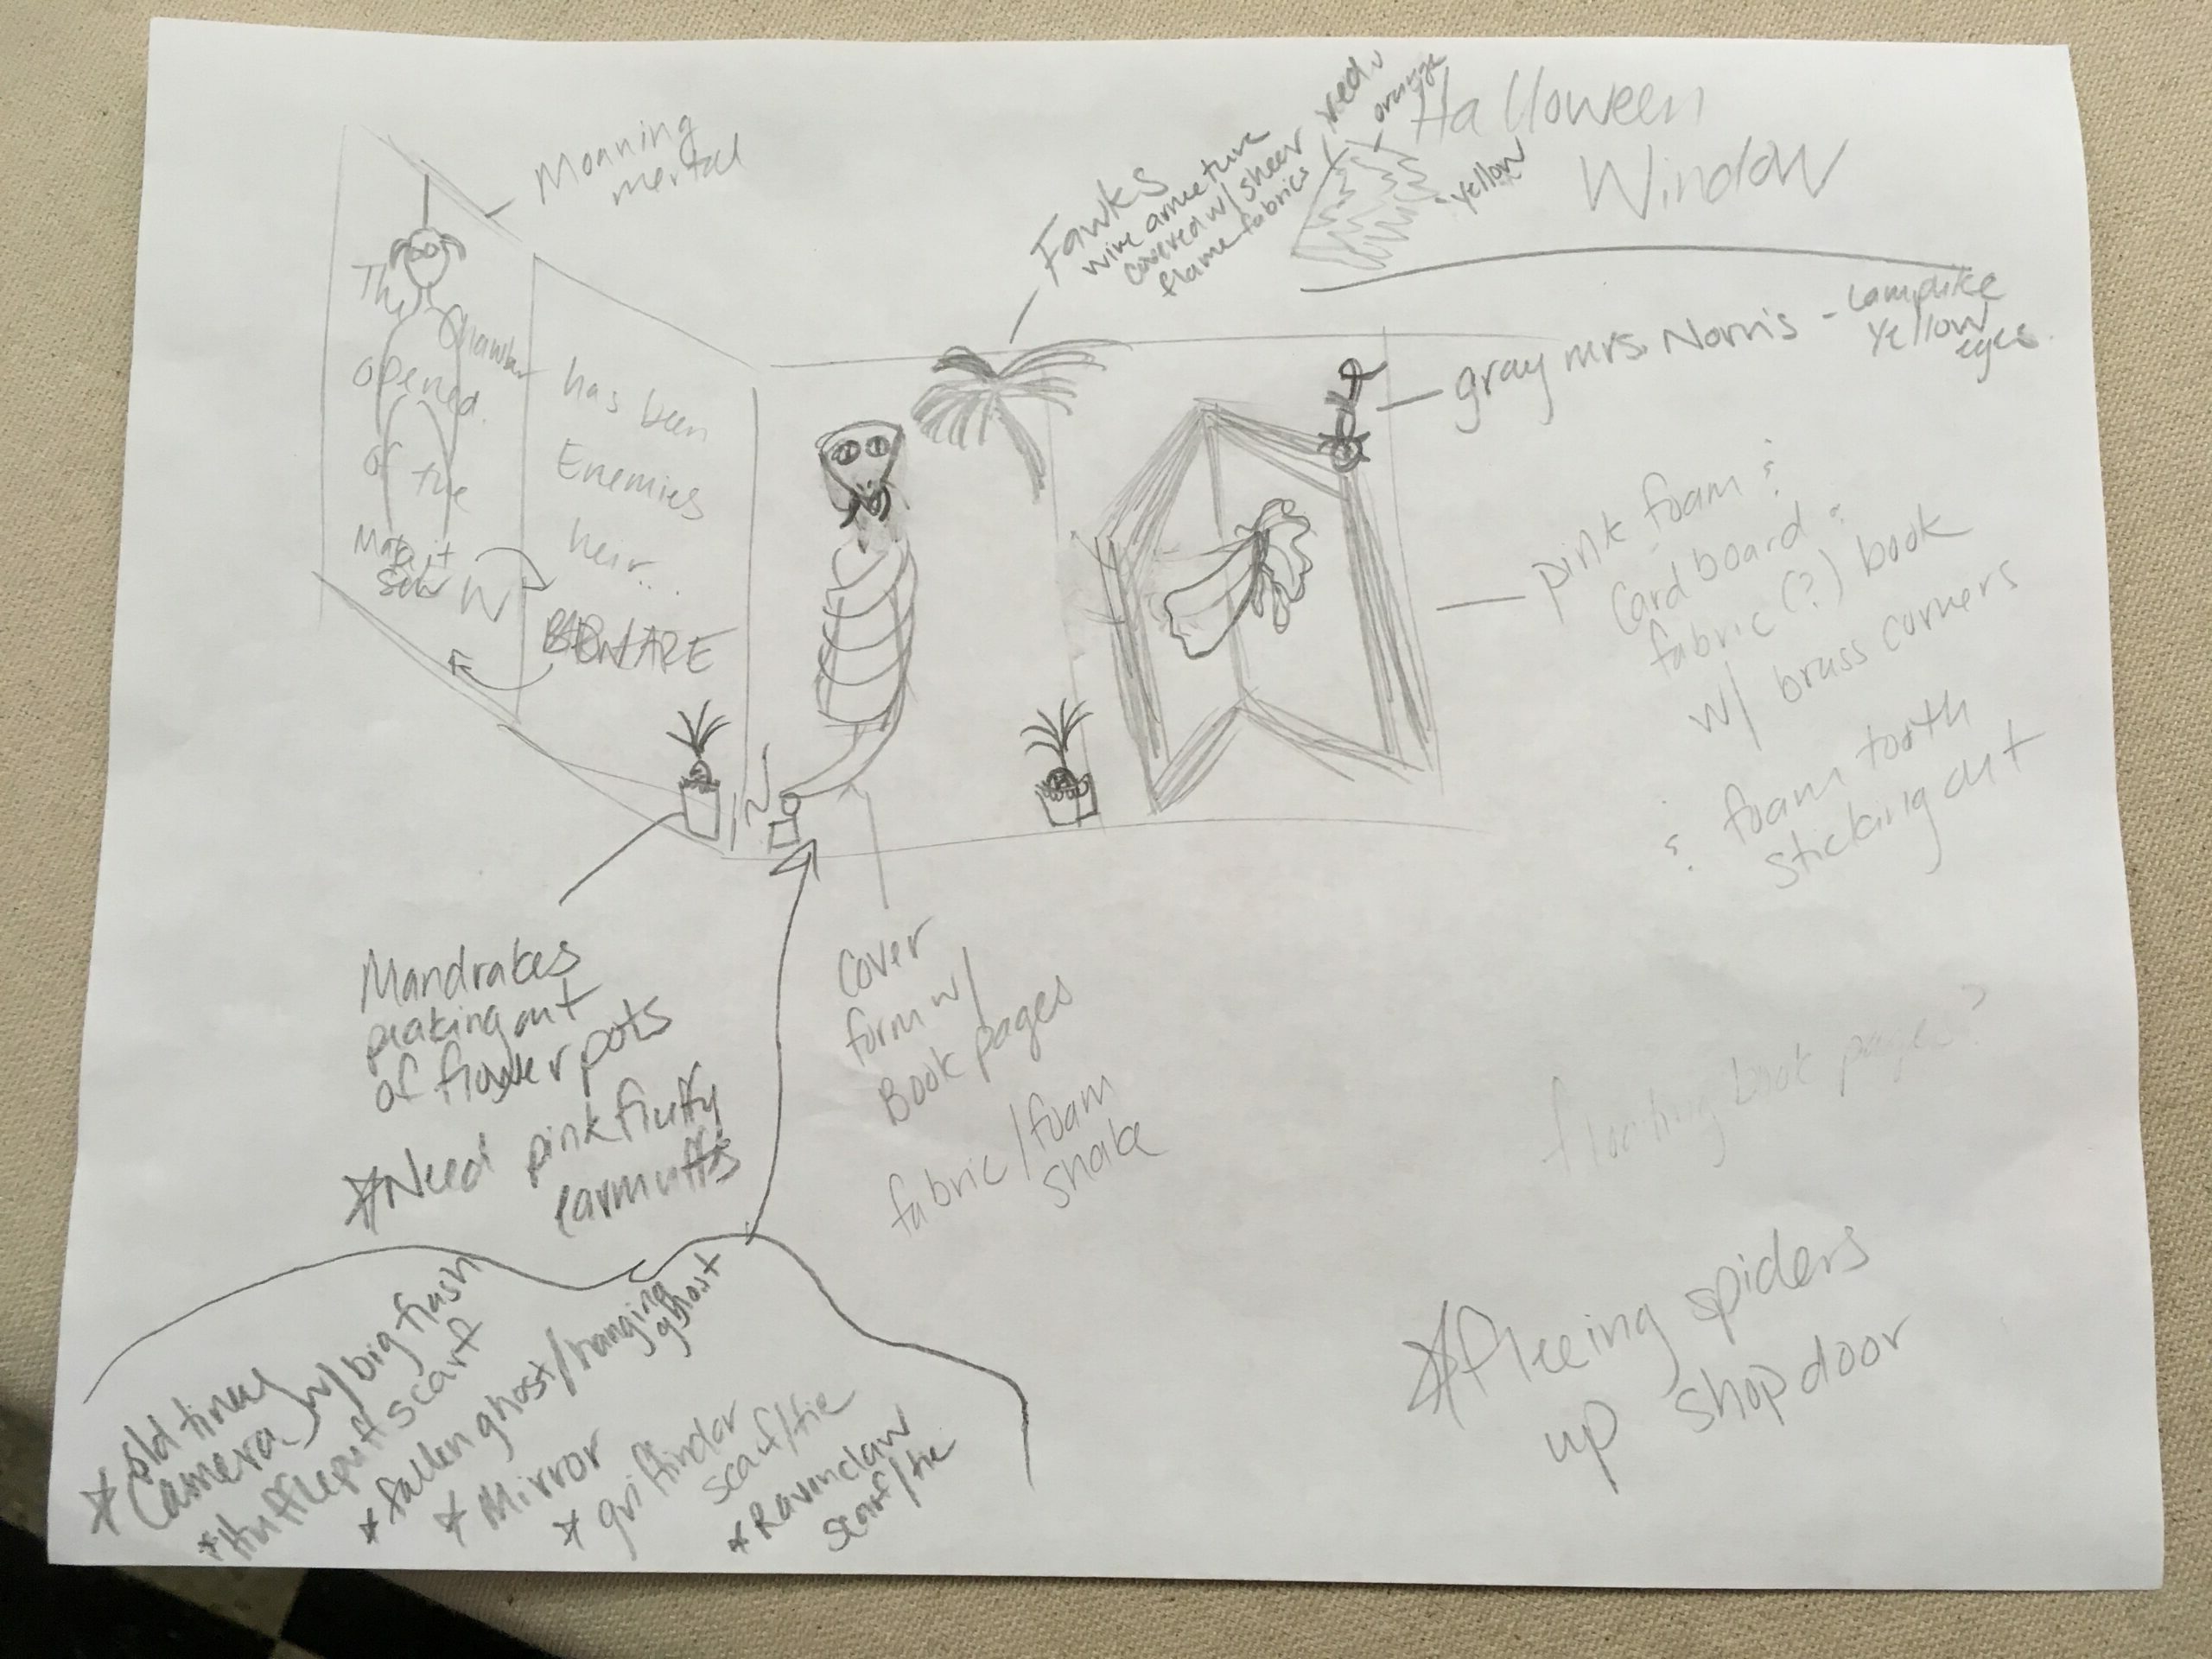 Halloween
Window
Moaning
mertal
Fawks
wire armeture
covered w/ sheer
flame fabrics
red
orange
yellow
gray mrs. Norris - Lamplike
Yellow
eyes.
The
Chamber
has been
opened.
Enemies
of the
heir...
Make it
sew
BEWARE
pink foam &
Cardboard &
fabric (?) book
w/ brass corners
& foam tooth
sticking out
Mandrakes
peaking out
of flower pots
*Need pink fluffy
earmuffs
Cover
form w/
Book pages
fabric/foam
snake
floating book pages?
*fleeing spiders
up shop door
* old timey
Camera w/ big flash
* Hufflepuff scarf
* fallen ghost/hanging
ghost
* Mirror
* griffindor
scarf/tie
* Ravinclaw
scarf/tie